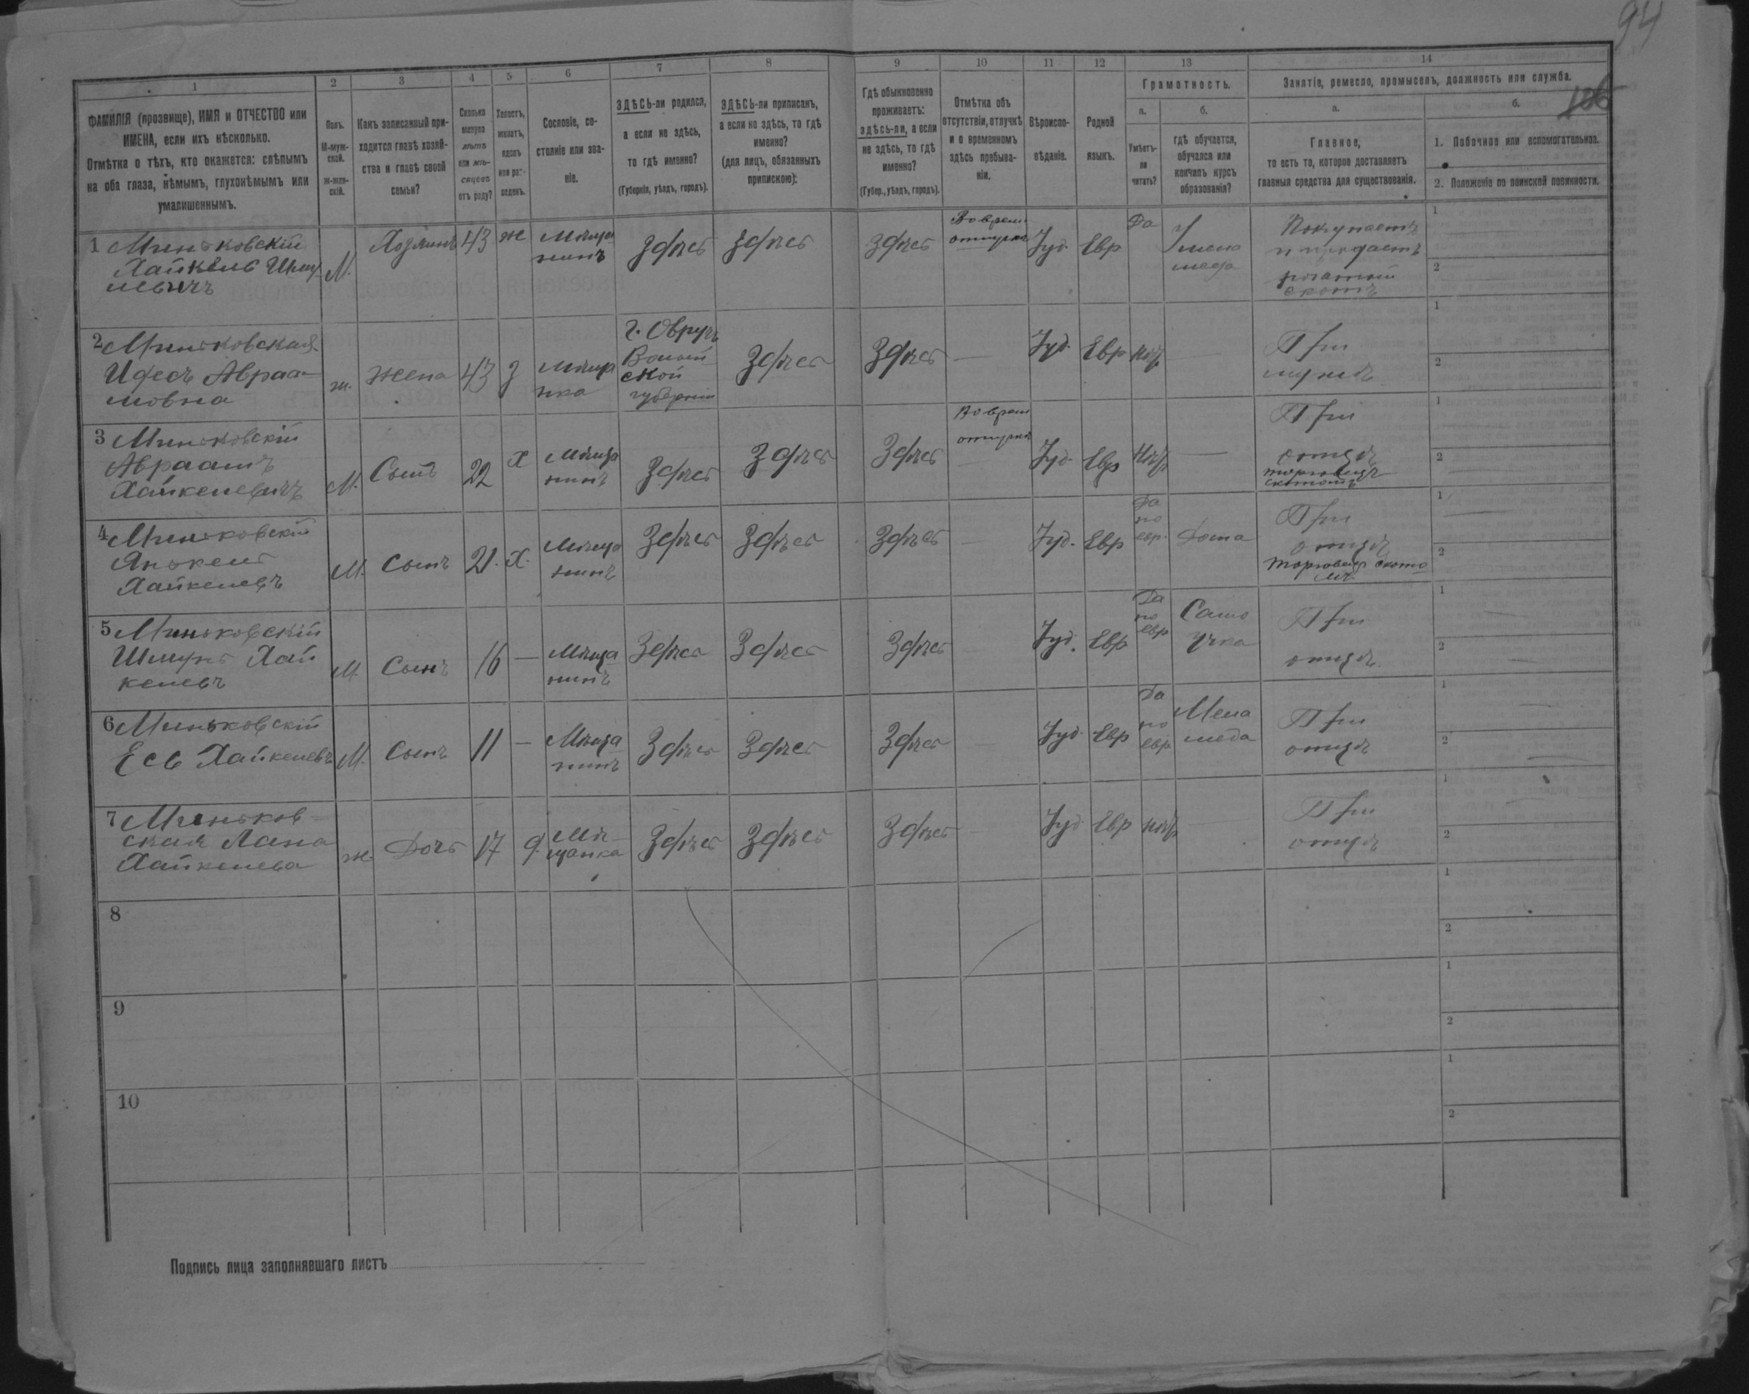 94
106
1 2 3 4 5 6 7 8 9 10 11 12 13 14
ФАМИЛІЯ (прозвище), ИМЯ и ОТЧЕСТВО или
ИМЕНА, если ихъ нѣсколько.
Отмѣтка о тѣхъ, кто окажется: слѣпымъ
на оба глаза, нѣмымъ, глухонѣмымъ или
умалишеннымъ.
Полъ.
М-муж-
ской.
Ж-жен-
скій.
Какъ записанный при-
ходится главѣ хозяй-
ства и главѣ своей
семьи?
Сколько
минуло
лѣтъ
или мѣ-
сяцевъ
отъ роду?
Холостъ,
женатъ,
вдовъ
или раз-
веденъ.
Сословіе, со-
стояніе или зва-
ніе.
ЗДѢСЬ-ли родился,
а если не здѣсь,
то гдѣ именно?
(Губернія, уѣздъ, городъ).
ЗДѢСЬ-ли приписанъ,
а если не здѣсь, то гдѣ
именно?
(для лицъ, обязанныхъ
припискою).
Гдѣ обыкновенно
проживаетъ:
здѣсь-ли, а если
не здѣсь, то гдѣ
именно?
(Губер., уѣздъ, городъ).
Отмѣтка объ
отсутствіи, отлучкѣ
и о временномъ
здѣсь пребыва-
ніи.
Вѣроиспо-
вѣданіе.
Родной
языкъ.
Грамотность.
а.
Умѣетъ-
ли
читать?
б.
гдѣ обучается,
обучался или
кончилъ курсъ
образованія?
Занятіе, ремесло, промыселъ, должность или служба.
а.
Главное,
то есть то, которое доставляетъ
главныя средства для существованія.
б.
1. Побочное или вспомогательное.
2. Положеніе по воинской повинности.
1 Миньковскій
Хайкель Шму
левичъ
М.
Хозяинъ
43
ж
Мѣща
нинъ
Здѣсь
Здѣсь
Здѣсь
Іуд.
Евр
Да
Покупаетъ
и продаетъ
рогатый
скотъ
1
2
2 Миньковская
Идесъ Авраа
мовна
ж.
Жена
43
З
Мѣща
нка
г. Овручъ
Волын
ской
губерніи
Здѣсь
Здѣсь
—
Іуд.
Евр
нѣт
При
мужѣ
1
2
3 Миньковскій
Авраамъ
Хайкелевичъ
М.
Сынъ
22
Х
Мѣща
нинъ
Здѣсь
Здѣсь
Здѣсь
Іуд.
Евр
Нѣт
—
При
отцѣ
торговецъ
скотомъ
1
2
4 Миньковскій
Янокель
Хайкелевъ
М.
Сынъ
21.
Х.
Мѣща
нинъ
Здѣсь
Здѣсь
Здѣсь
—
Іуд.
Евр
Да
по
евр.
Дома
При
отцѣ
Торговецъ ското
мъ
1
2
5 Миньковскій
Шмулъ Хай
келевъ
М.
Сынъ
16
—
Мѣща
нинъ
Здѣсь
Здѣсь
Здѣсь
Іуд.
Евр
Да
по
евр
Само
учка
При
отцѣ
1
2
6 Миньковскій
Есь Хайкелевъ
М.
Сынъ
11
—
Мѣща
нинъ
Здѣсь
Здѣсь
Здѣсь
—
Іуд
Евр
Да
по
евр
Мела
меда
При
отцѣ
1
2
7 Миньков
ская Хана
Хайкелева
ж
Дочь
17
д.
Мѣ
щанка
Здѣсь
Здѣсь
Здѣсь
—
Іуд
Евр
нѣт
При
отцѣ
1
2
8
1
2
9
1
2
10
1
2
Подпись лица заполнявшаго листъ